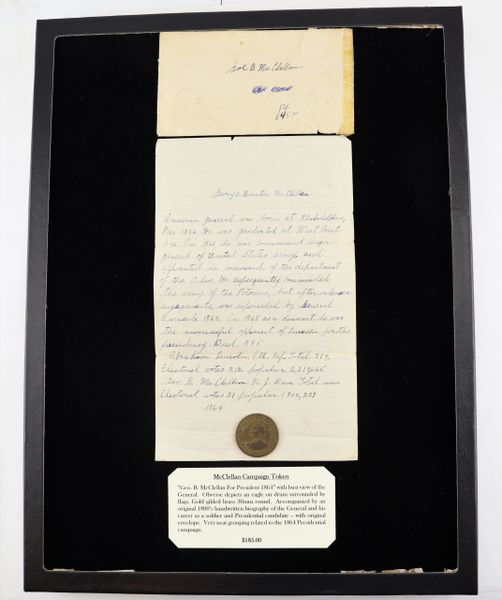 Geo B McClellan
$45.00
George Brinton McClellan
American general was born at Philadelphia,
Pa. 1826. He was graduated at West Point
1846. In 1861 he was commissioned major
general of United States army, and
appointed in command of the department
of the Ohio. He subsequently commanded
the army of the Potomac, but after
engagements, was superseded by General
Burnside 1862. In 1865 as a democrat he was
the unsuccessful opponent of Lincoln for the
presidency. Died 1885
Abraham Lincoln Ill. Rep. Total 217
Electoral votes 212 popular 2,213,665
Geo. B. McClellan N. J. Dem Total
Electoral votes 21 popular 1,802,237
1864
McClellan Campaign Token
"Geo. B. McClellan For President 1864" with bust view of the
General. Obverse depicts an eagle on drum surrounded by
flags. Gold gilded brass 30mm round. Accompanied by an
original 1800's handwritten biography of the General and his
career as a soldier and Presidential candidate – with original
envelope. Very neat grouping related to the 1864 Presidential
campaign.
$185.00